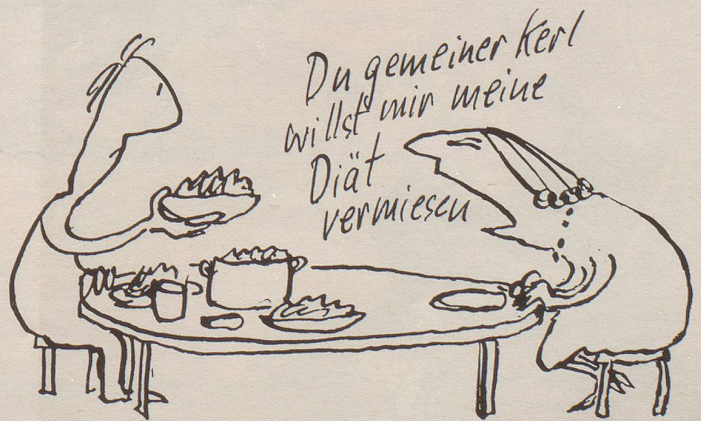 Du gemeiner Kerl
willst mir meine
Diät
vermiesen